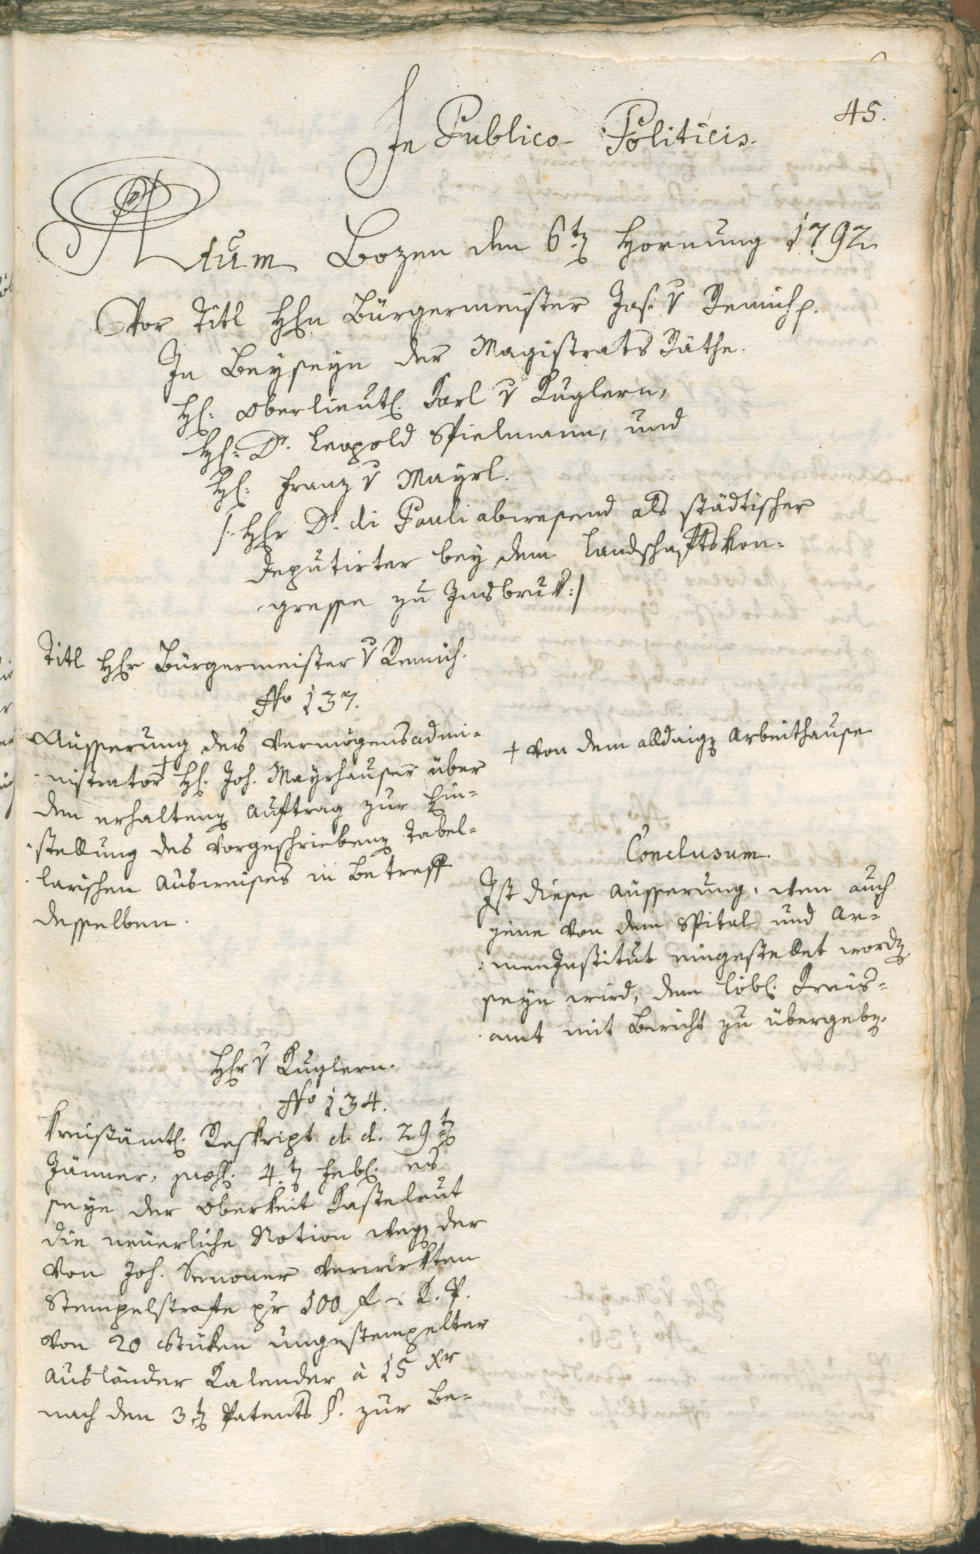 45.
In Publico-Politicis.
Actum Bozen den 6ten Hornung 1792
Vor Titl Hhn Bürgermeister Jos: v Remich p.
In Beyseyn der Magistrats Räthe.
H: Oberlieut: Karl v Kuglern,
H: Dr. Leopold Spielmann, und
H: Franz v Mayrl.
/: Hr Dr. di Pauli abwesend als städtischer
Deputirter bey dem Landschaftskon-
gresse zu Insbruk :/
Titl Hr Bürgermeister v Remich.
No 137.
Äusserung des Vermögensadmi-
nistrator + H: Joh. Mayrhauser über
den erhaltenen Auftrag zur Ein-
stellung des vorgeschriebenen tabel-
larischen Ausweises in Betreff
desselben.
+ von dem alldaigen Arbeithause
Conclusum.
Ist diese Äusserung, wen auch
jene von dem Spital und Ar-
men Institut eingestellet worden
seyn wird, dem löbl: Kreis-
amt mit Bericht zu übergeben.
Hr v Kuglern.
No 134.
Kreisämtl: Reskript d. d. 29ten
Jänner, 4ten Febl: es
seye der Oberkeit Kastelrut
die neuerliche Notion wegen der
von Joh. Senoner verwirkten
Stempelstrafe pr 100 f — : R. P.
von 20 Stüken ungestempelter
Ausländer Kalender à 15 Xr
nach den 3ten Patents §. zur Be-